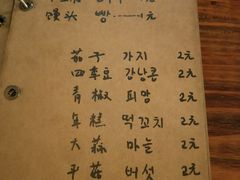 馒头 빵 元
茄子 가지 2元
四季豆 강낭콩 2元
青椒 피망 2元
年糕 떡꼬치 2元
大蒜 마늘 2元
平菇 버섯 2元